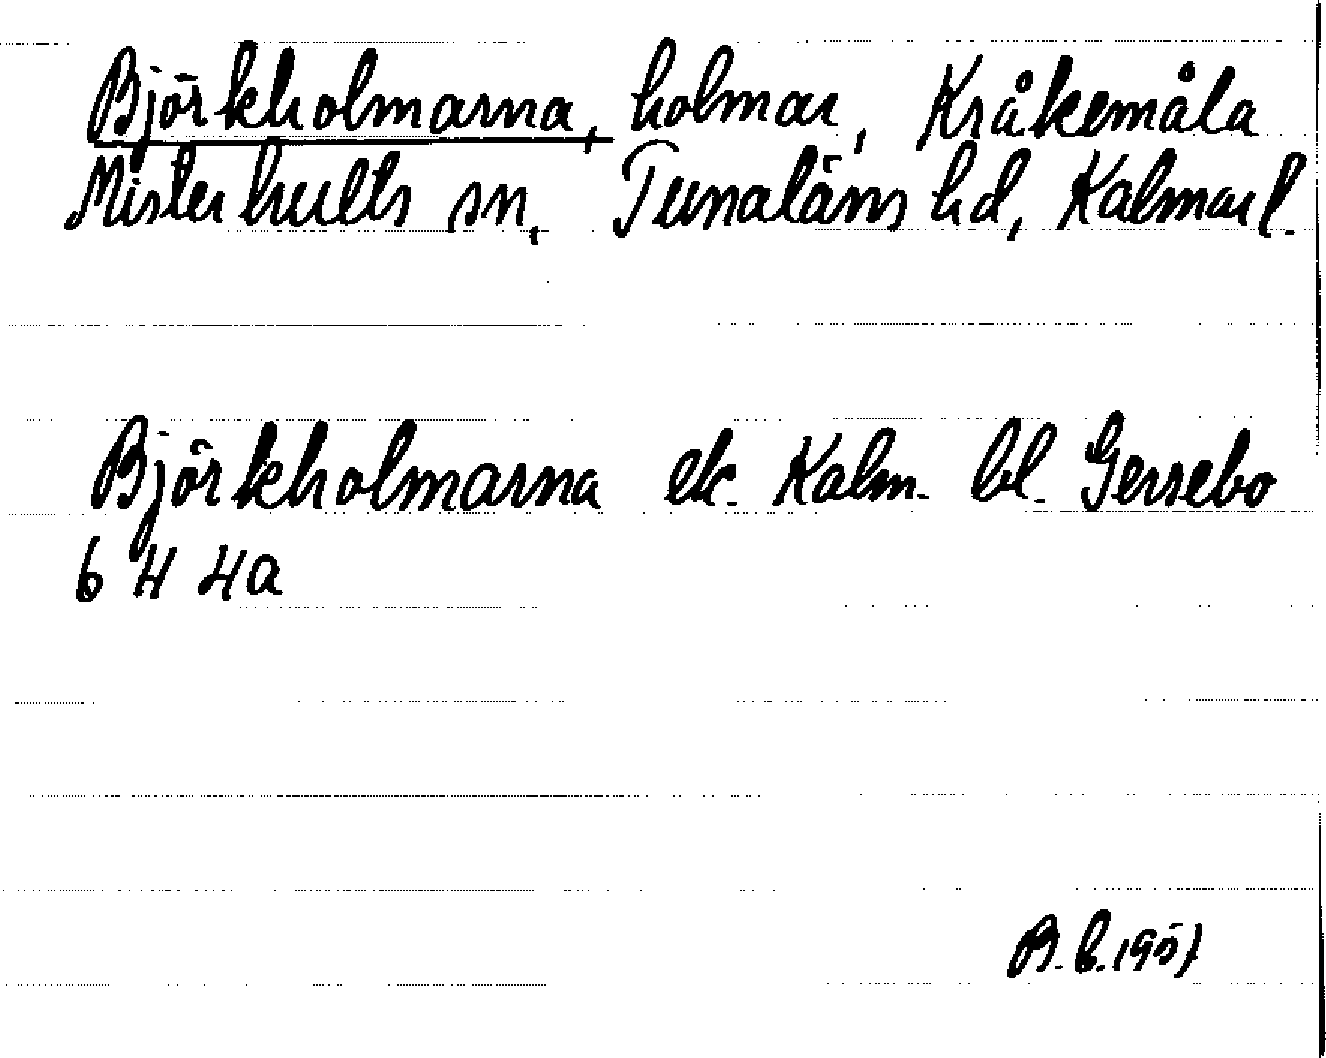 Björkholmarna, holmar, Kråkemåla
Misterhults sn, Tunaläns hd, Kalmar l.
Björkholmarna ek. Kalm. bl. Gersebo
6 H 4a
B. E. 1957